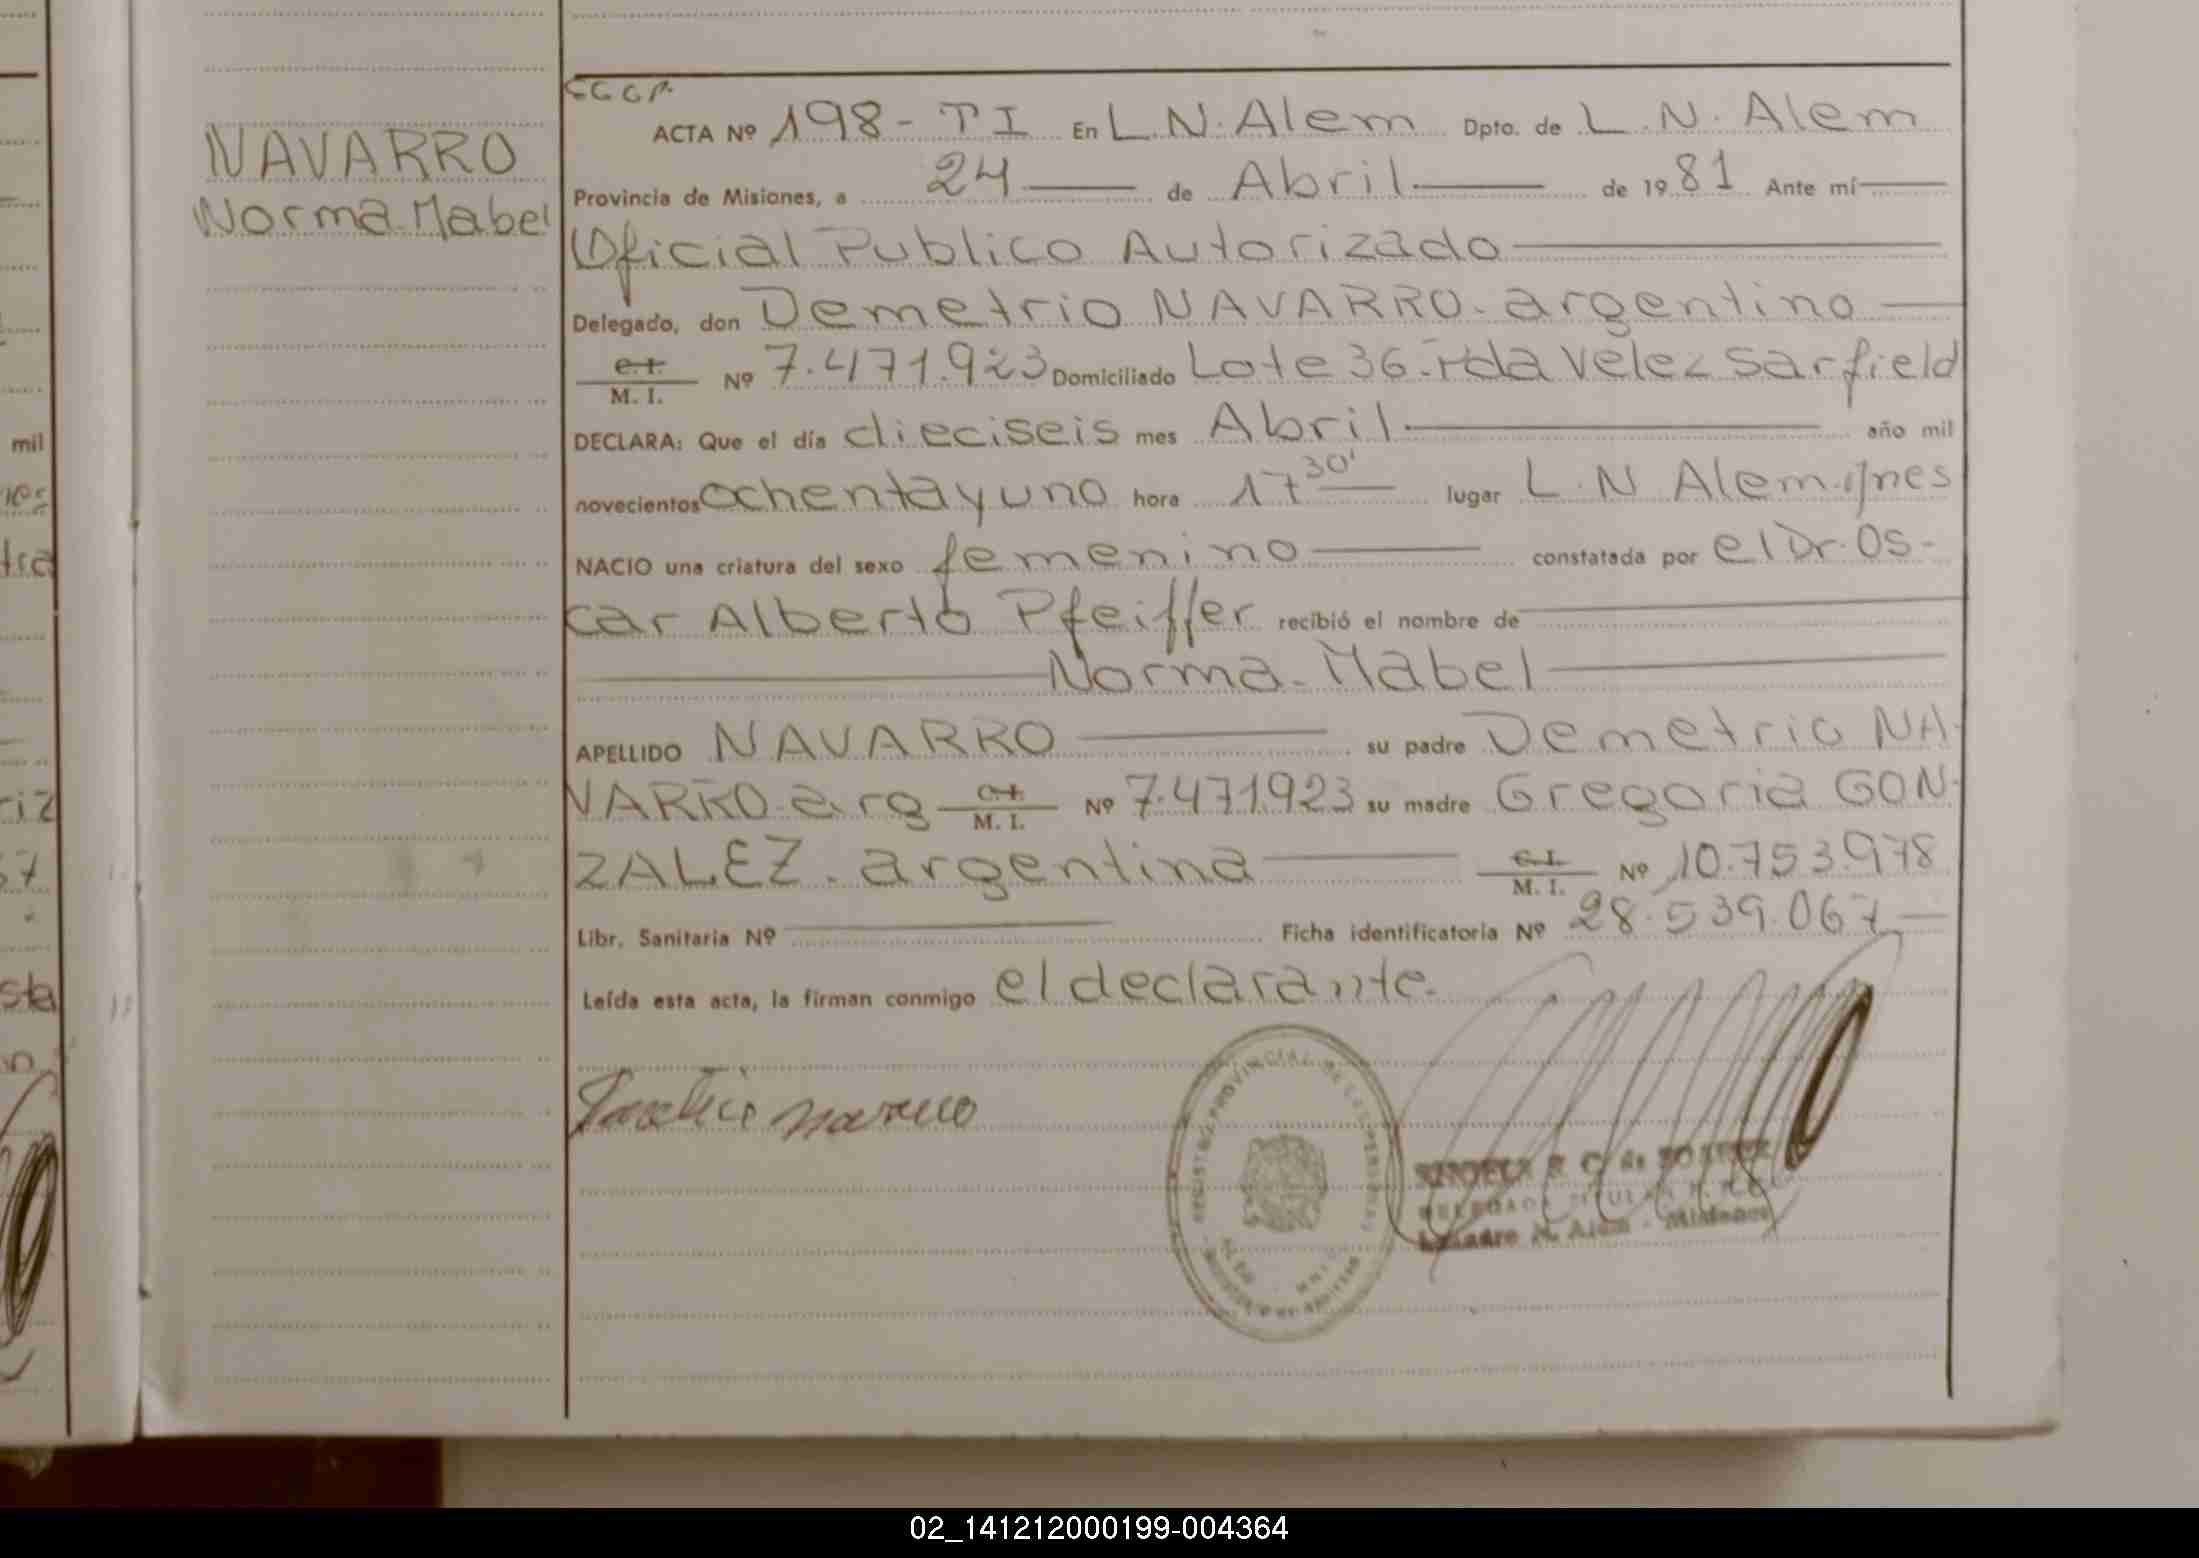 NAVARRO
Norma Mabel
ACTA Nº 198 - T I En L.N. Alem Dpto. de L.N. Alem
Provincia de Misiones, a 24 de Abril de 1981 Ante mí
Oficial Publico Autorizado
Delegado, don Demetrio NAVARRO. argentino
C.I. M. I. Nº 7.471.923 Domiciliado Lote 36. Velez Sarfield
DECLARA: Que el día dieciseis mes Abril año mil
novecientos ochenta y uno hora 17 30' lugar L.N Alem
NACIO una criatura del sexo femenino constatada por el Dr. Os-
car Alberto Pfeiffer recibió el nombre de
Norma Mabel
APELLIDO NAVARRO su padre Demetrio NA-
VARRO. arg C.I. M. I. Nº 7.471.923 su madre Gregoria GON-
ZALEZ. argentina C.I. M. I. Nº 10.753.978
Libr. Sanitaria Nº Ficha identificatoria Nº 28.539.067
Leída esta acta, la firman conmigo el declarante.
REGISTRO PROVINCIAL DE LAS PERSONAS
Leandro N. Alem - Misiones
mil
02_141212000199-004364